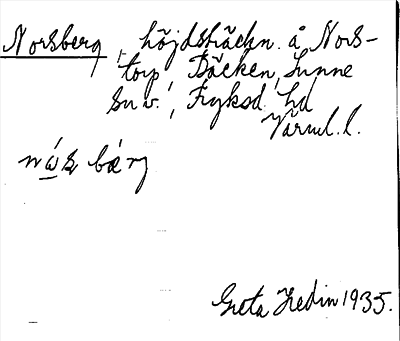 Norsberg, höjdsträckn. å Nors-
torp, Bäcken, Sunne
sn v., Fryksd. hd
Värml. l.
Greta Hedin 1935.